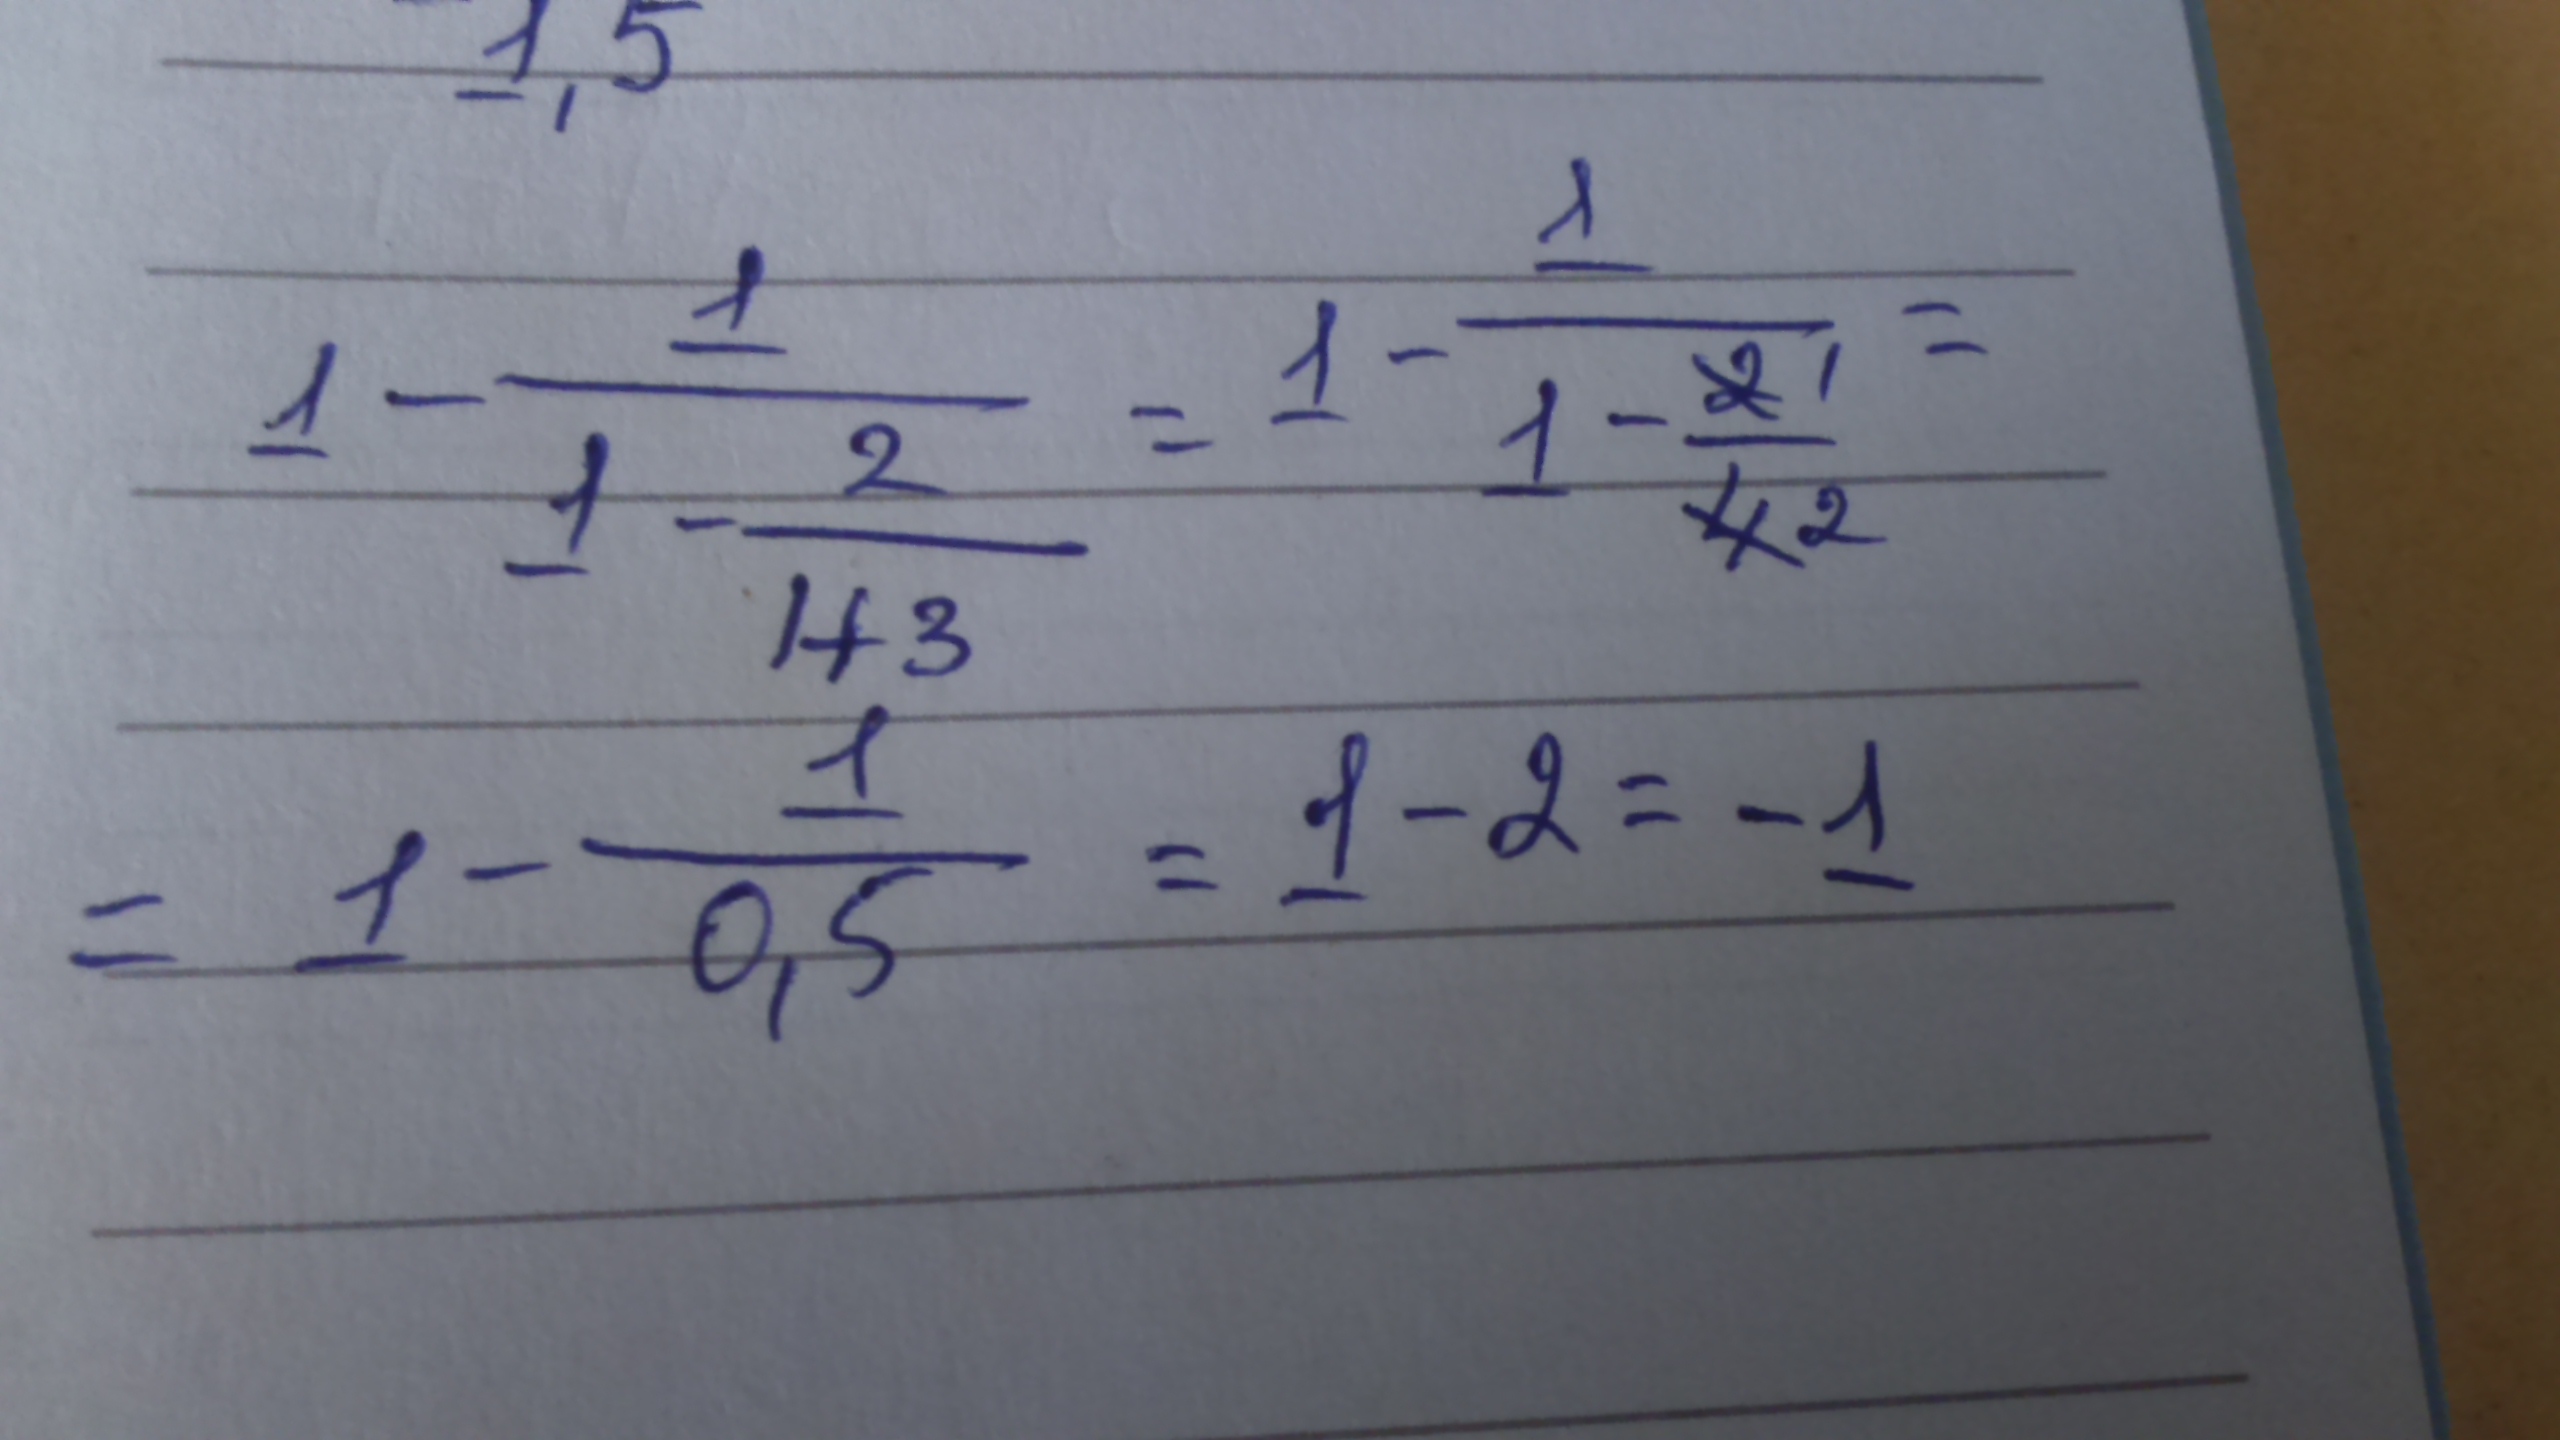 1,5
1 - 1/(1 - 2/(1+3)) = 1 - 1/(1 - 2 1/4 2) =
= 1 - 1/0,5 = 1 - 2 = -1